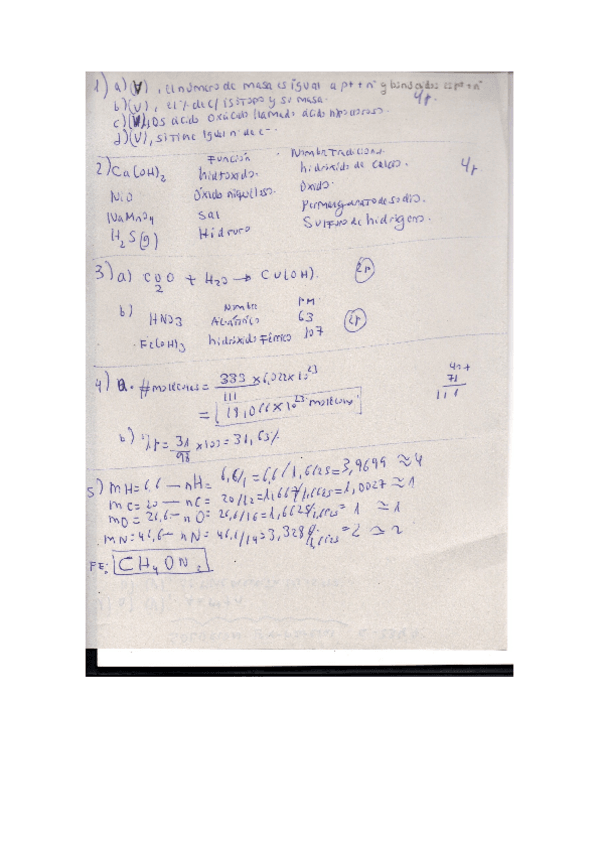 1) a) (V), el número de masa es igual a p+ + n° y los nucleidos es p+ + n°
4p.
b) (V), el % de c/isótopo y su masa.
c) ácido oxácido llamado ácido
d) (V), si tiene igual n° de e-.
Función Nombre Tradicional
2) Ca(OH)2 hidróxido. hidróxido de calcio. 4p
NiO Óxido niqueloso. Óxido.
NaMnO4 sal permanganato de sodio.
H2S(g) Hidruro Sulfuro de hidrógeno.
3) a) CuO + H2O → Cu(OH). 2p
2
b) Nombre PM
HNO3 Ac. nítrico 63 2p
Fe(OH)3 hidróxido férrico 107
4) a. # moléculas = 333 x 6,022x10^23
111
= 18,066x10^23 moléculas
40+
71
111
b) %P = 31 x 100 = 31,63%
98
5) mH = 6,6 — nH = 6,6/1 = 6,6/1,6625 = 3,9699 ≈ 4
mC = 20 — nC = 20/12 = 1,667/1,6625 = 1,0027 ≈ 1
mO = 26,6 — nO = 26,6/16 = 1,6625/1,6625 = 1 ≈ 1
mN = 46,6 — nN = 46,6/14 = 3,328/1,6625 = 2 ≈ 2
FE: CH4ON2